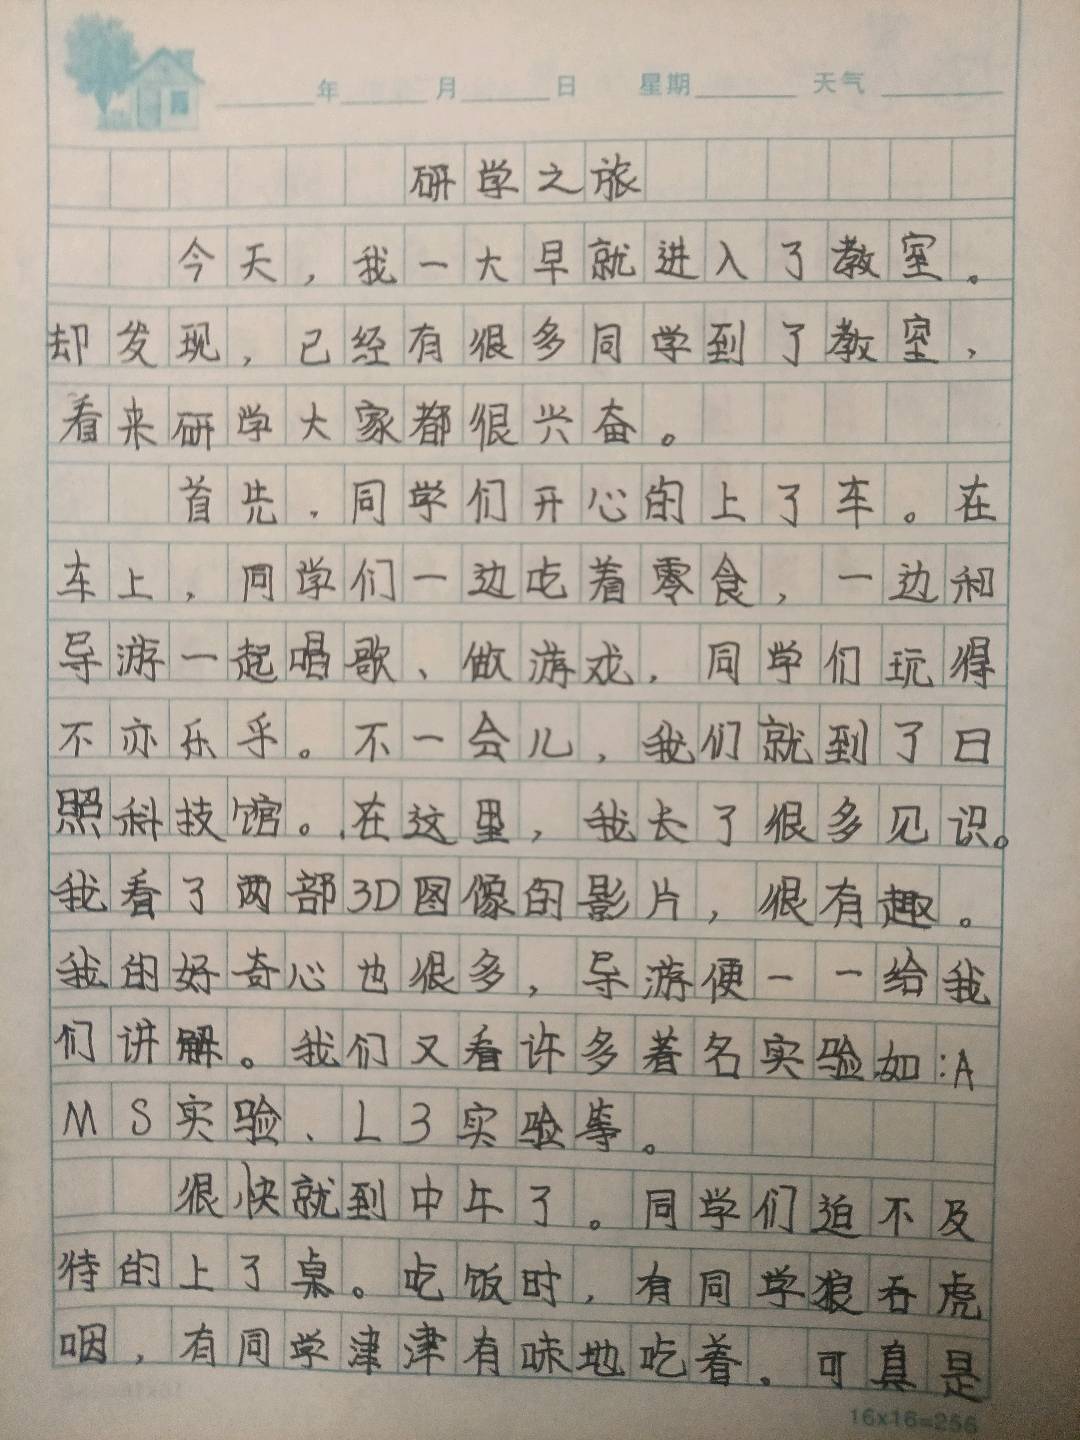 年 月 日 星期 天气
研学之旅
今天，我一大早就进入了教室。
却发现，已经有很多同学到了教室，
看来研学大家都很兴奋。
首先，同学们开心的上了车。在
车上，同学们一边吃着零食，一边和
导游一起唱歌、做游戏，同学们玩得
不亦乐乎。不一会儿，我们就到了日
照科技馆。在这里，我长了很多见识。
我看了两部3D图像的影片，很有趣。
我的好奇心也很多，导游便一一给我
们讲解。我们又看许多著名实验如:A
MS实验、L3实验等。
很快就到中午了。同学们迫不及
待的上了桌。吃饭时，有同学狼吞虎
咽，有同学津津有味地吃着。可真是
16x16=256